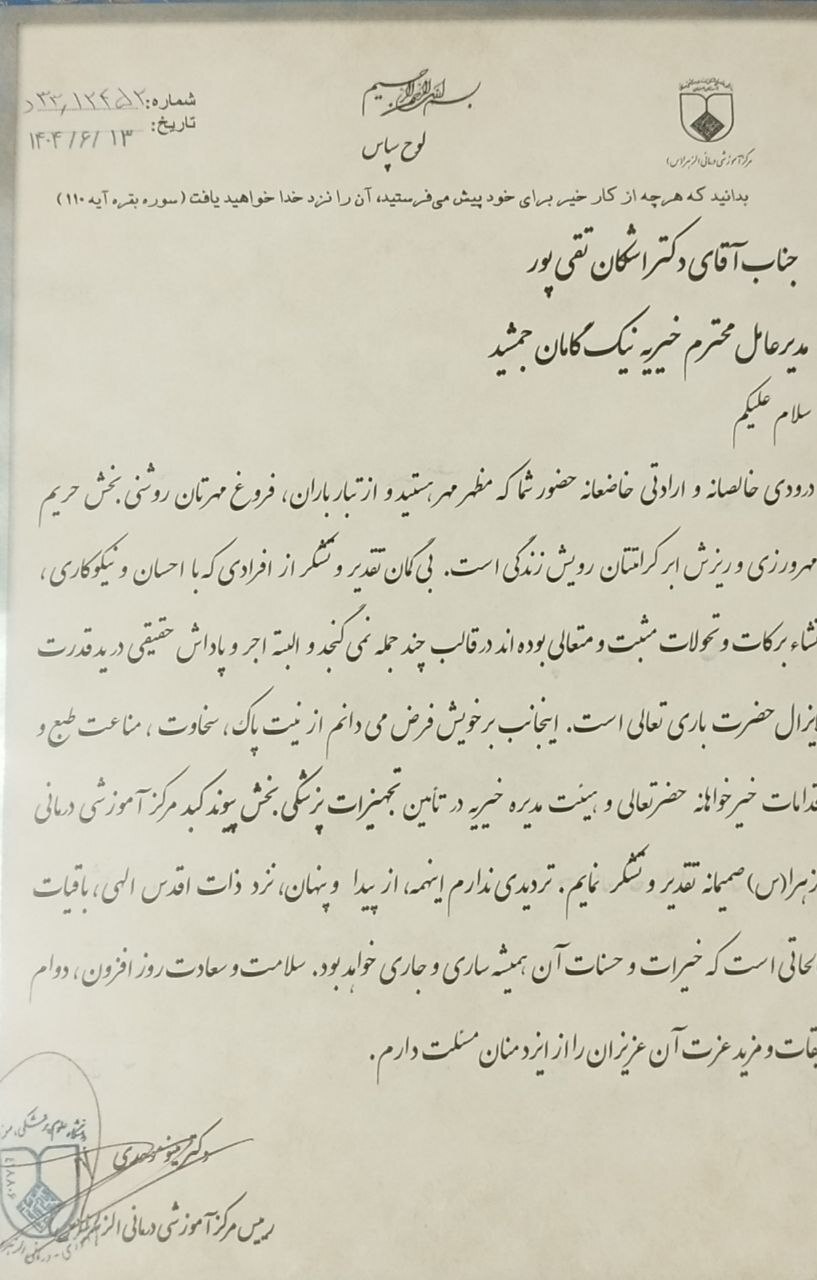 بسم الله الرحمن الرحیم
شماره:
تاریخ: ۱۴۰۴/۶/۱۳
مرکز آموزشی درمانی الزهرا(س)
لوح سپاس
بدانید که هرچه از کار خیر برای خود پیش می‌فرستید، آن را نزد خدا خواهید یافت (سوره بقره آیه ۱۱۰)
جناب آقای دکتر اشکان تقی پور
مدیرعامل محترم خیریه نیک گامان جمشید
سلام علیکم
درودی خالصانه و ارادتی خاضعانه حضور شما که مظهر مهر هستید و از تبار باران، فروغ مهرتان روشنی بخش حریم
مهرورزی و ریزش ابر کرامتتان رویش زندگی است. بی گمان تقدیر و تشکر از افرادی که با احسان و نیکوکاری،
نشاء برکات و تحولات مثبت و متعالی بوده اند در قالب چند جمله نمی گنجد و البته اجر و پاداش حقیقی در ید قدرت
ایزال حضرت باری تعالی است. اینجانب بر خویش فرض می دانم از نیت پاک، سخاوت، مناعت طبع و
قدامات خیرخواهانه حضرتعالی و هیئت مدیره خیریه در تأمین تجهیزات پزشکی بخش پیوند کبد مرکز آموزشی درمانی
زهرا(س) صمیمانه تقدیر و تشکر نمایم. تردیدی ندارم اینهمه، از پیدا و پنهان، نزد ذات اقدس الهی، باقیات
لحاتی است که خیرات و حسنات آن همیشه ساری و جاری خواهد بود. سلامت و سعادت روز افزون، دوام
یقات و مزید عزت آن عزیزان را از ایزد منان مسئلت دارم.
دکتر
رییس مرکز آموزشی درمانی الزهرا(س)